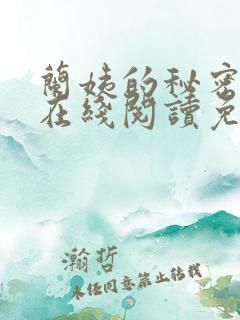 蘭姨的秘密
在綫閱讀免
瀚哲
未经同意禁止转载